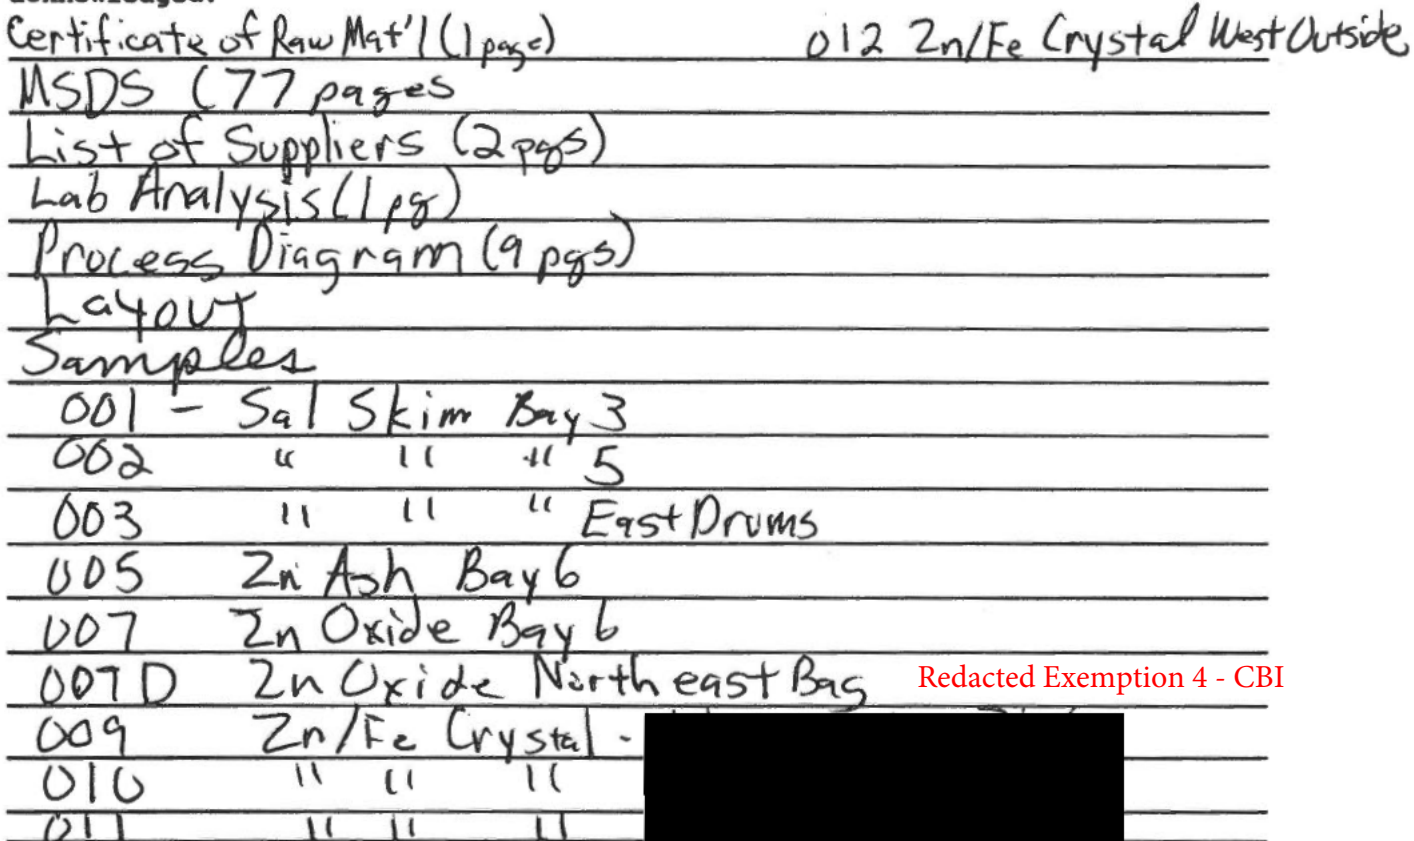 Certificate of Raw Mat'l (1 page) 012 Zn/Fe Crystal West Outside
MSDS (77 pages
List of Suppliers (2 pgs)
Lab Analysis (1 pg)
Process Diagram (9 pgs)
Layout
Samples
001 - Sal Skim Bay 3
002 " " " 5
003 " " " East Drums
005 Zn Ash Bay 6
007 Zn Oxide Bay 6
007D Zn Oxide Northeast Bag Redacted Exemption 4 - CBI
009 Zn/Fe Crystal -
010 " " "
011 " " "